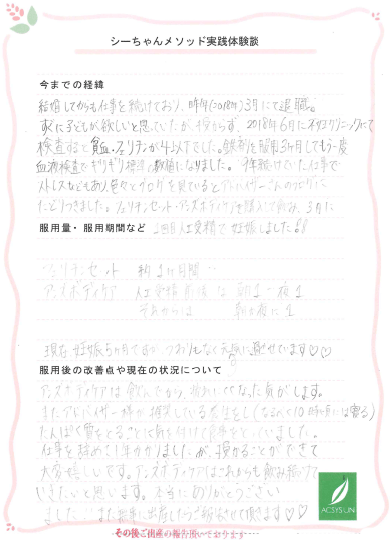 シーちゃんメソッド実践体験談
今までの経緯
結婚してからも仕事を続けており、昨年(2018年)3月にて退職。
すぐに子どもが欲しいと思っていたが授からず、2018年6月に クリニックにて
検査すると貧血、フェリチンが4以下でした。鉄剤を服用3ヶ月してもう一度
血液検査でギリギリ標準 数値になりました。 続けていた仕事で
ストレスなどもあり色々とブログを見ているとアドバイザーさんのブログに
たどりつきました。フェリチンセット、アンズボディケアを購入して飲み、3月に
服用量・服用期間など
2回目人工受精で妊娠しました!!
フェリチンセット 約1ヶ月間
アンズボディケア 人工受精前後は 朝1・夜1
それからは 朝か夜に1
現在 妊娠5か月で つわりもなく元気に過ごせています♡♡
服用後の改善点や現在の状況について
アンズボディケアは飲んでから、 なった気がします。
またアドバイザー様が推奨している をし(なるべく10時頃には寝る)
たんぱく質をとることに気を付けて食事をとっていました。
仕事を辞めて1年かかりましたが、授かることができて
大変嬉しいです。アンズボディケアはこれからも飲み続けて
いきたいと思います。本当にありがとうござい
ました また 出産したらご報告させて頂きます♡♡
ACSYSUN
その後ご出産の報告頂いております